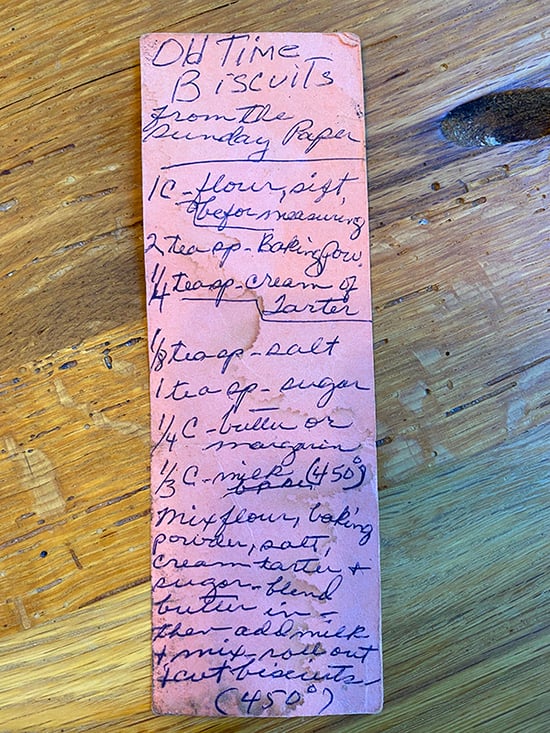 Old Time
Biscuits
from the
Sunday Paper
1 C - flour, sift,
befor measuring
2 teasp - Baking Pow.
1/4 teasp - cream of
Tarter
1/8 teasp - salt
1 teasp - sugar
1/4 C - butter or
margarin
1/3 C - milk (450°)
Mix flour, baking
powder, salt,
cream tarter +
sugar - blend
butter in -
then add milk
+ mix - roll out
+ cut biscuits
(450°)